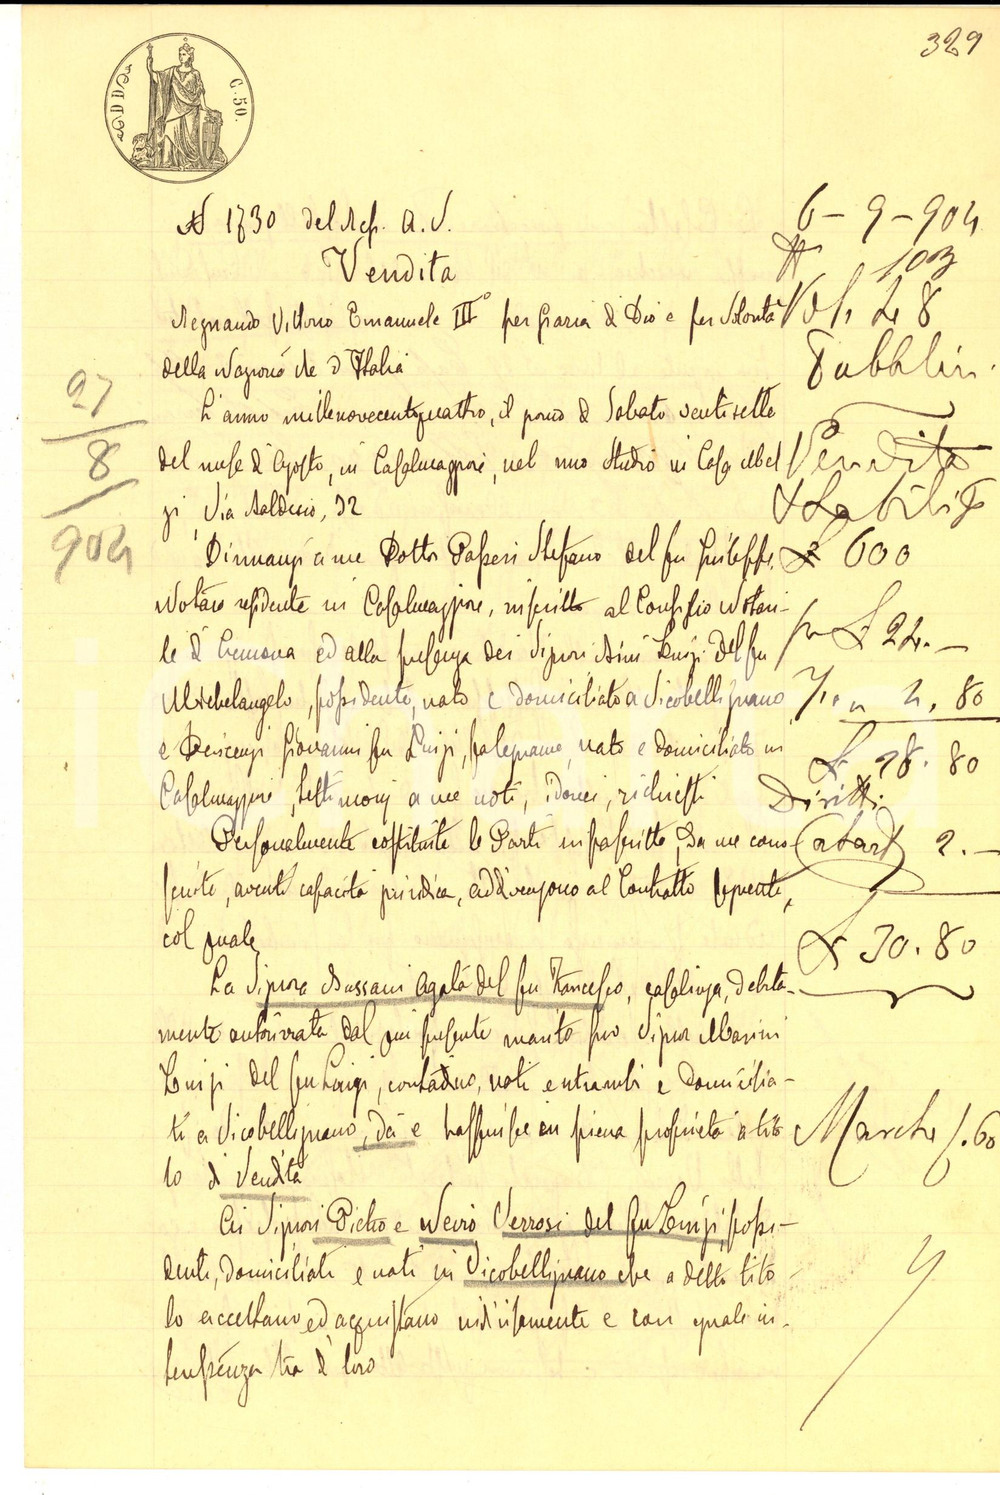 329
C. 50.
N 1730 del Rep. A. V.
Vendita
Regnando Vittorio Emanuele III° per Grazia di Dio e per Volontà
della Nazione Re d'Italia
L'anno millenovecentoquattro, il giorno di Sabato ventisette
del mese d'Agosto, in Casalmaggiore, nel mio Studio in Casa
Via Baldesio, 32
Dinnanzi a me Dottor Passeri Stefano del fu Giuseppe,
Notaro residente in Casalmaggiore, inscritto al Consiglio Notari-
le di Cremona ed alla presenza dei Signori Luigi del fu
Michelangelo, possidente, nato e domiciliato a Vicobellignano
e Giovanni fu Luigi, falegname, nato e domiciliato in
Casalmaggiore, testimonj a me noti, idonei, richiesti
Personalmente costituite le Parti infrascritte, da me cono
sciute, aventi capacità giuridica, addivengono al Contratto seguente,
col quale
La Signora Bussani Agata del fu Francesco, casalinga, debita-
mente autorizzata dal qui presente marito suo Signor Marini
Luigi del fu Luigi, contadino, nati entrambi e domicilia-
ti a Vicobellignano, dà e trasferisce in piena proprietà a tito
lo di Vendita
Ai Signori Pietro e Nevio Verrosi del fu Luigi, possi-
denti, domiciliati e nati in Vicobellignano che a detto tito
lo accettano ed acquistano indivisamente e con quale in-
teressenza tra di loro
27
8
904
6-9-904
N 103
Vol. 28
Pubblici
Vendita
Stabili
£ 600
£ 24.-
4.80
£ 28.80
Diritti
Catast 2.-
£ 30.80
Marche 1.60